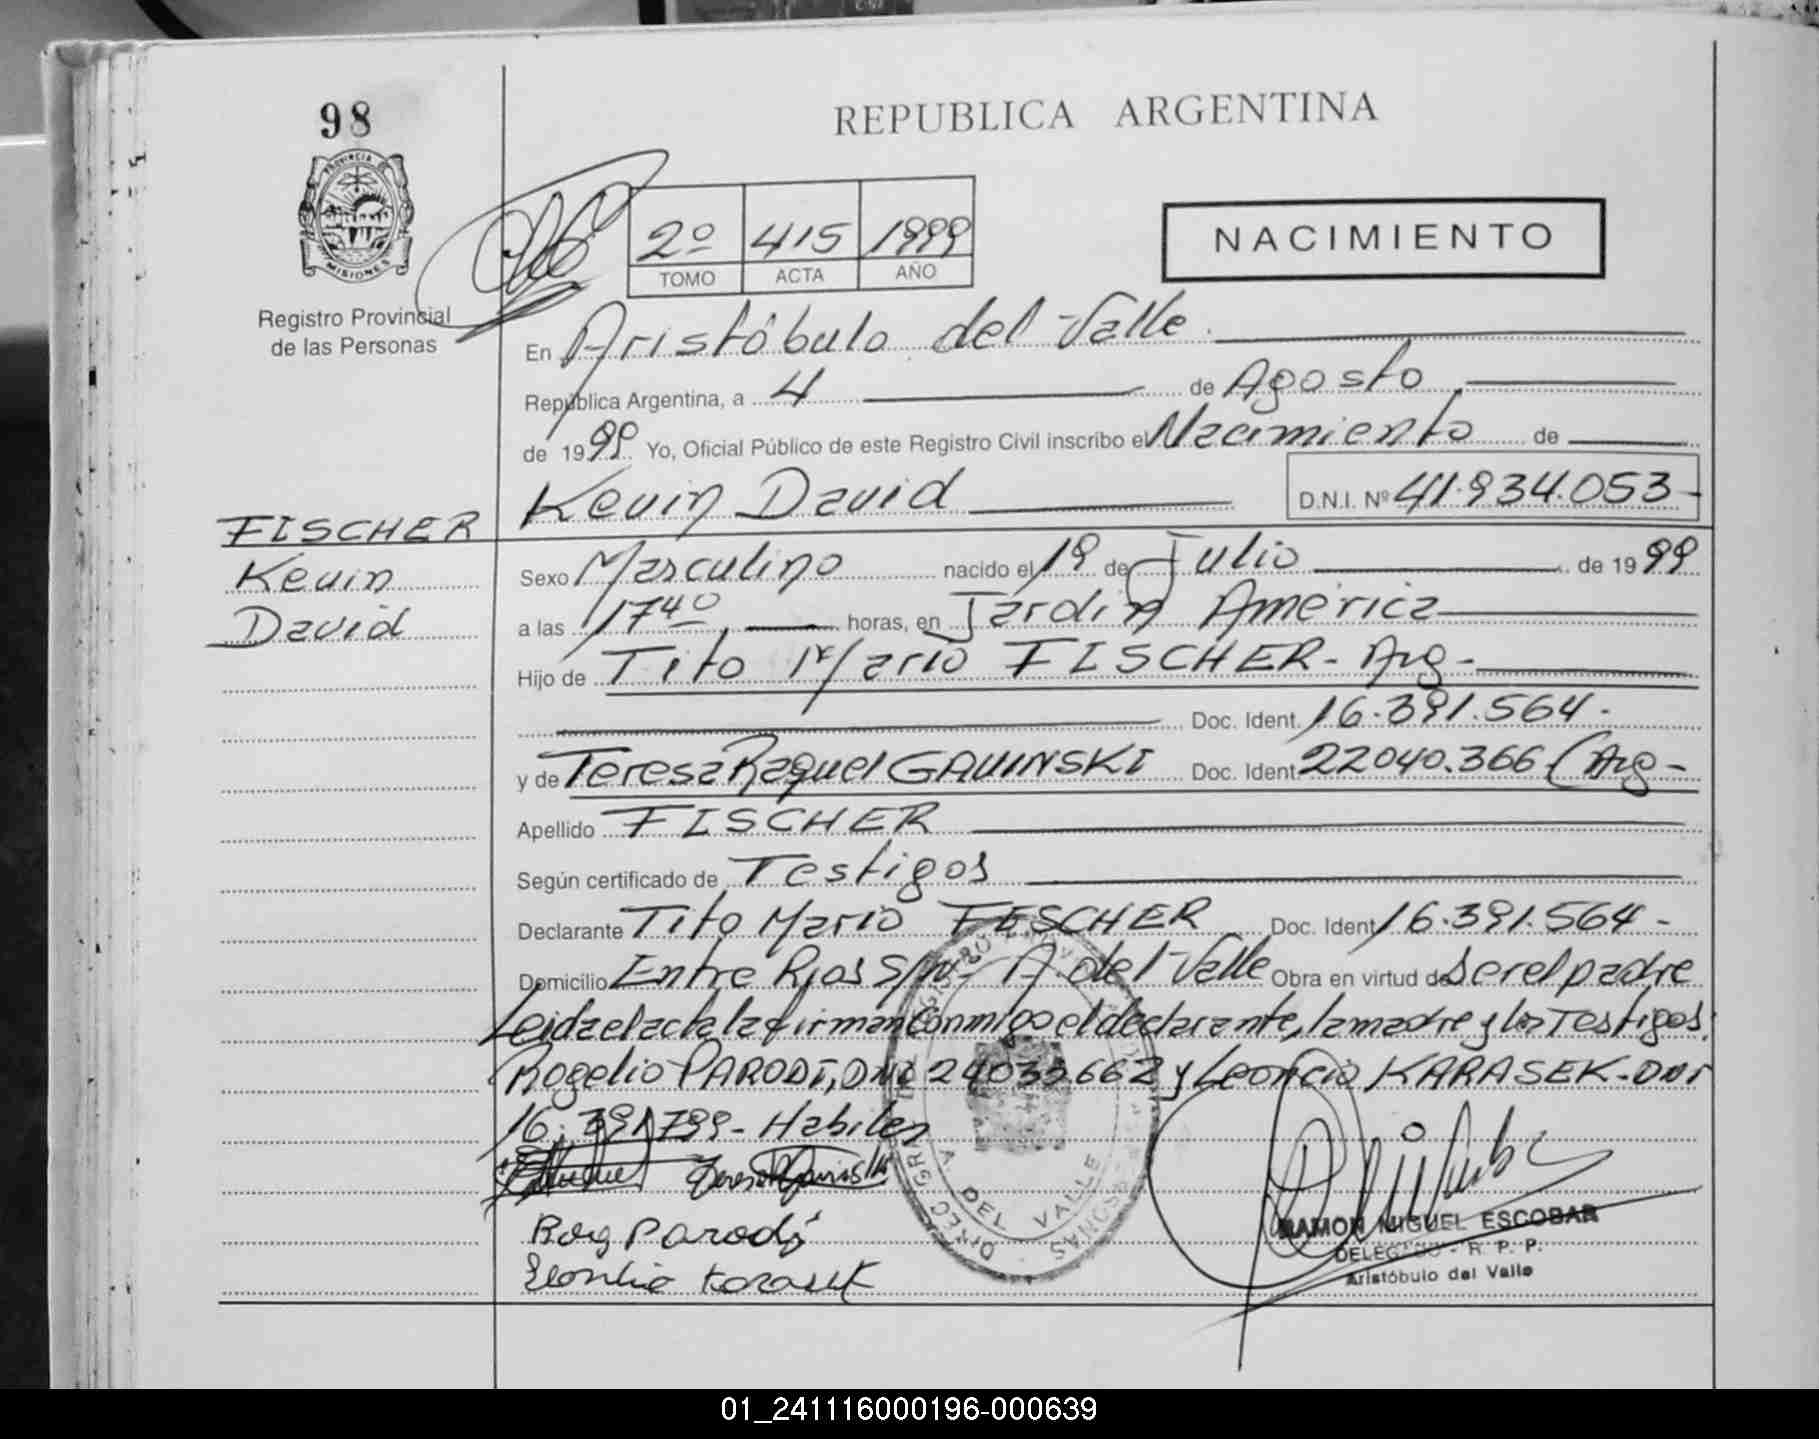 98
REPUBLICA ARGENTINA
PROVINCIA DE MISIONES
Registro Provincial
de las Personas
2º 415 1999
TOMO ACTA AÑO
NACIMIENTO
En Aristóbulo del Valle
República Argentina, a 4 de Agosto
de 1999 Yo, Oficial Público de este Registro Civil inscribo el Nacimiento de
Kevin David D.N.I. Nº 41.934.053-
FISCHER
Kevin
David
Sexo Masculino nacido el 19 de Julio de 1999
a las 17⁴⁰ horas, en Jardín América
Hijo de Tito Mario FISCHER- Arg-
Doc. Ident. 16.391.564-
y de Teresa Raquel GAVINSKI Doc. Ident. 22040.366 (Arg-
Apellido FISCHER
Según certificado de Testigos
Declarante Tito Mario FISCHER Doc. Ident 16.391.564-
Domicilio Entre Rios S/Nº- A. del Valle Obra en virtud de Ser el padre
Leida el acta la firman conmigo el declarante, la madre y los Testigos:
Rogelio PARODI, DNI 24033662 y Leoncio KARASEK-DNI
16.391799- Habiles
Rog Parodi
Leoncio Karasek
A. DEL VALLE
RAMON MIGUEL ESCOBAR
DELEGADO - R. P. P.
Aristóbulo del Valle
01_241116000196-000639